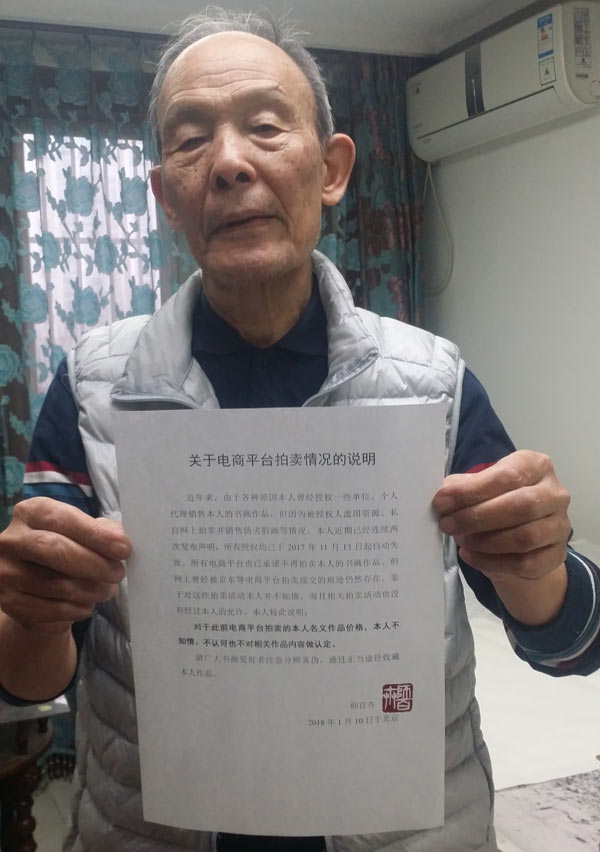 关于电商平台拍卖情况的说明
近年来，由于各种原因本人曾经授权一些单位、个人
代理销售本人的书画作品，但因为被授权人滥用资源，私
自网上拍卖并销售伪劣假画等情况，本人近期已经连续两
次发布声明，所有授权均已于 2017 年 11 月 13 日起自动失
效。所有电商平台也已承诺不再拍卖本人的书画作品。但
网上曾经被京东等电商平台拍卖成交的痕迹仍然存在。鉴
于对这些拍卖活动本人并不知情，而且相关拍卖活动也没
有经过本人的允许，本人特此说明：
对于此前电商平台拍卖的本人名义作品价格，本人不
知情、不认可也不对相关作品内容做认定。
请广大书画爱好者注意分辨真伪，通过正当途径收藏
本人作品。
师百卉
2018 年 1 月 10 日于北京